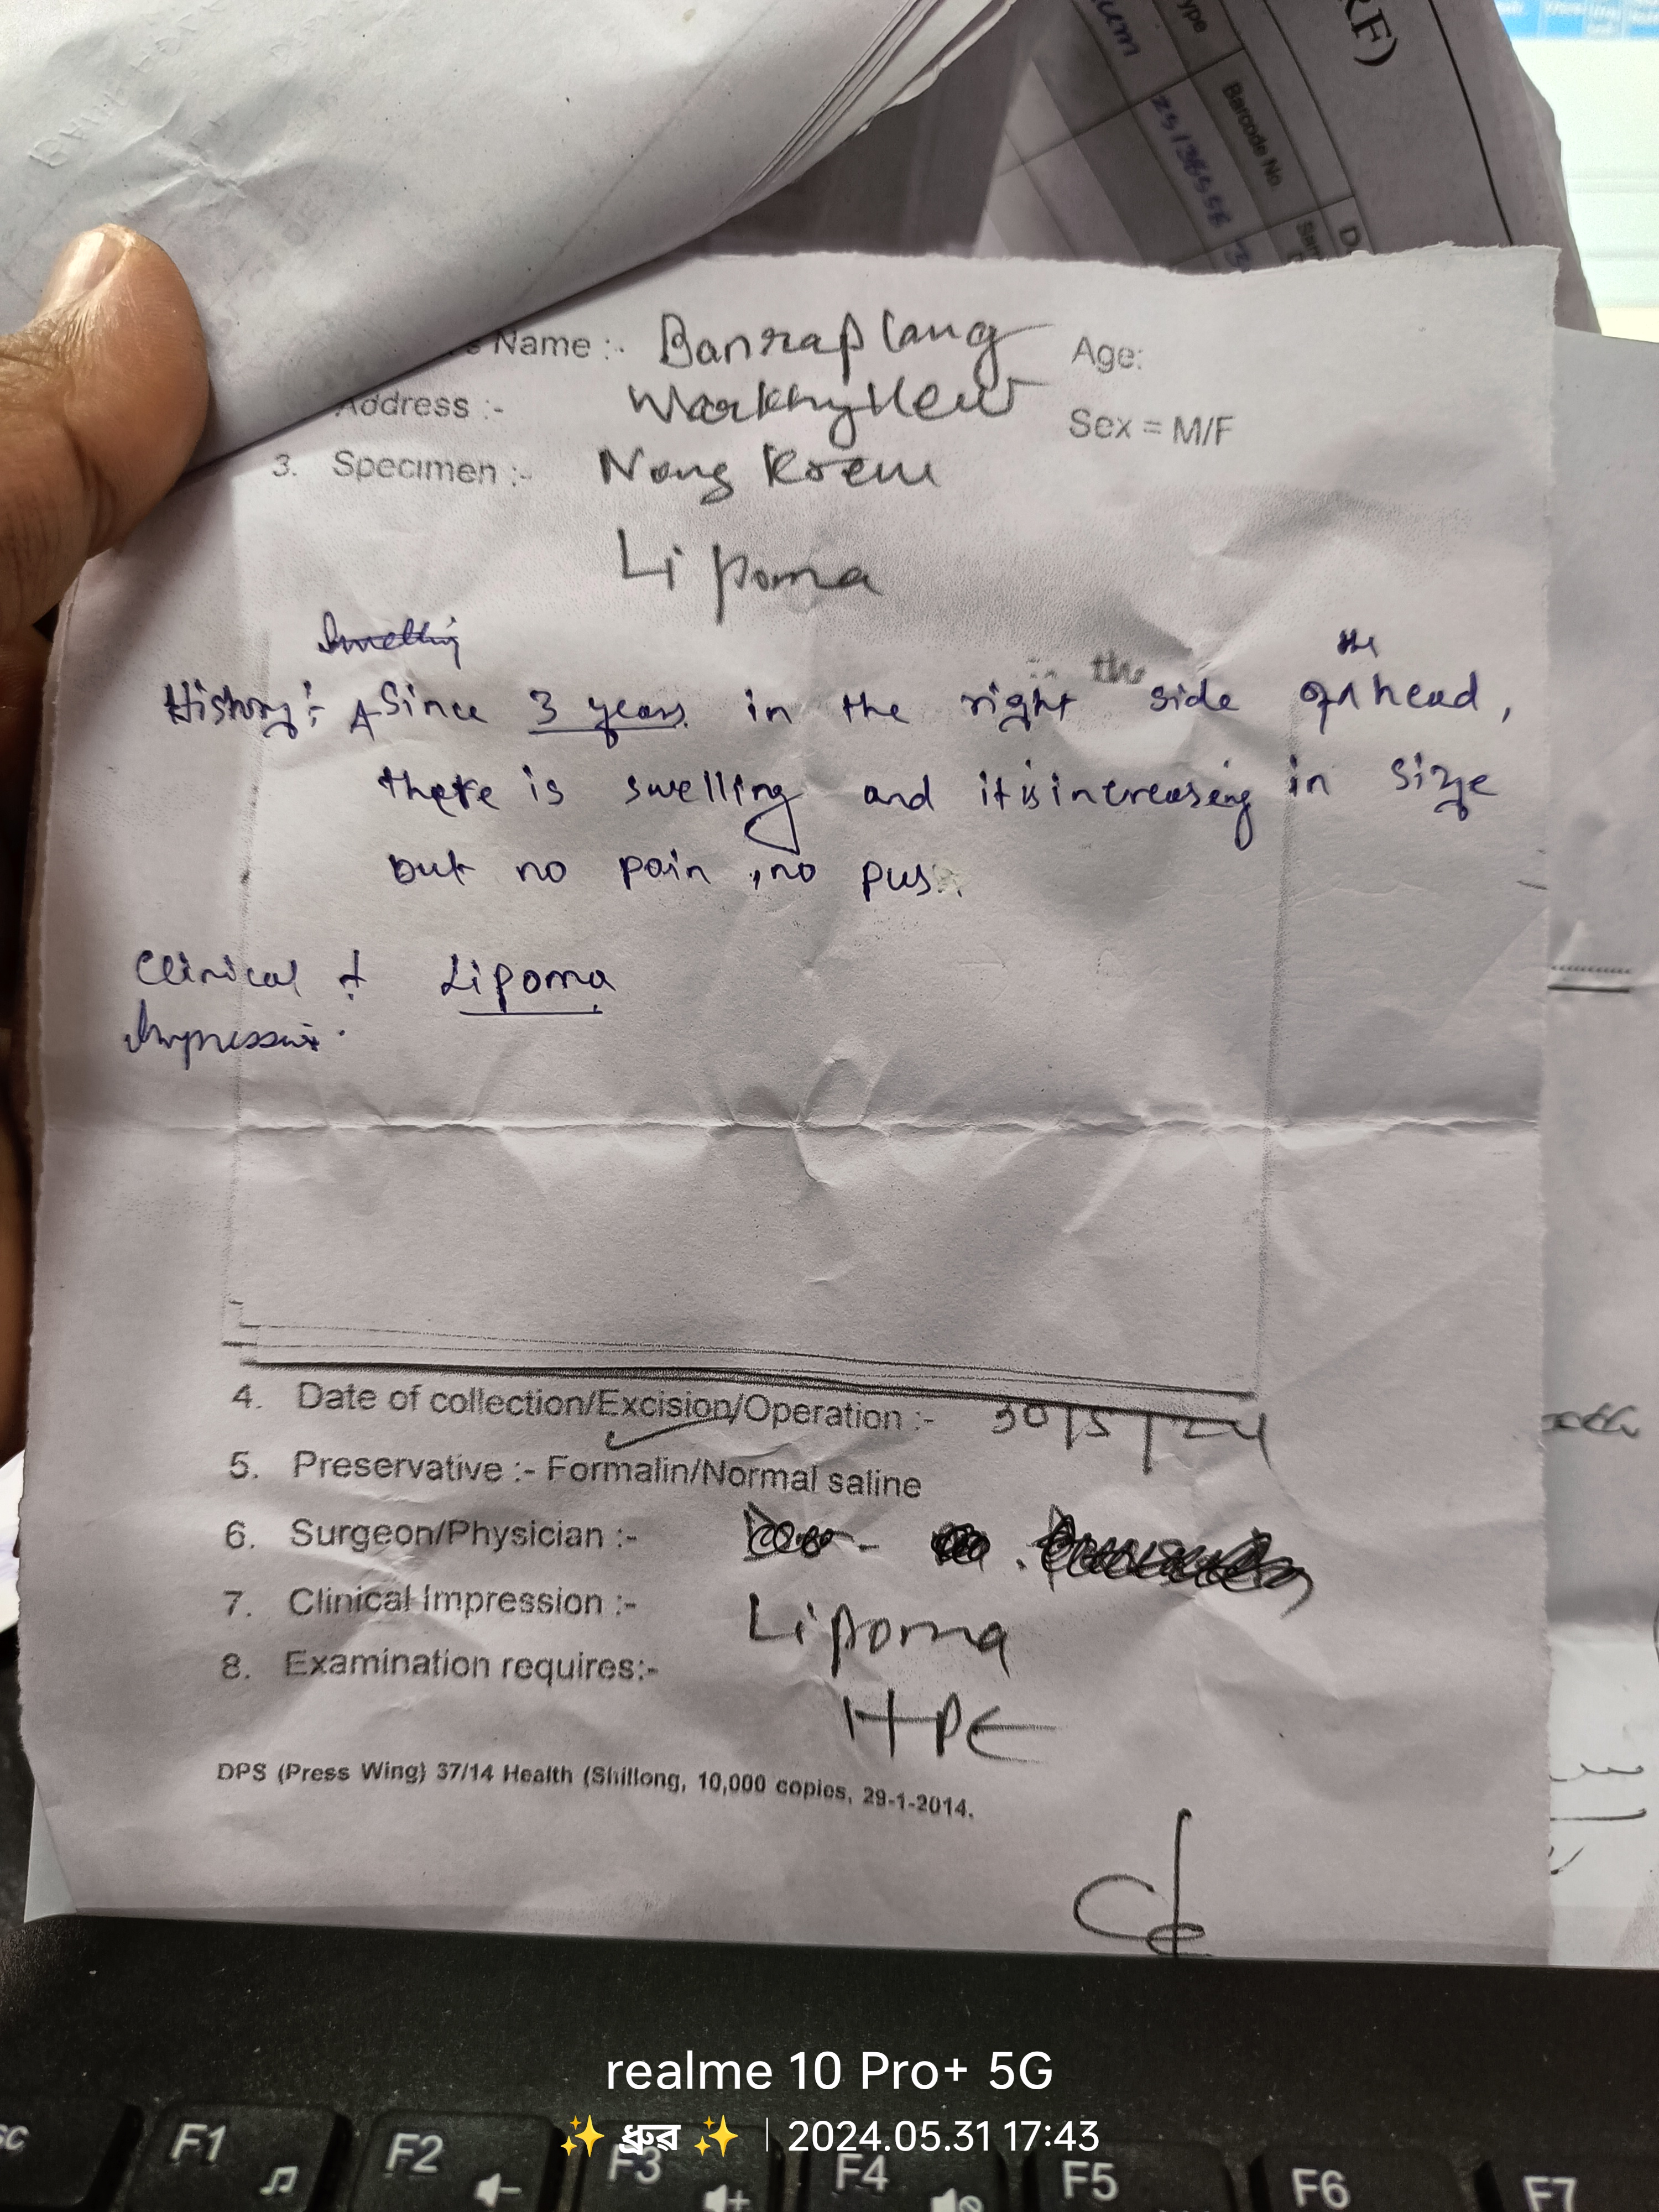 RF)
ype
Barcode No
um
Name :- Banraplang
Age:
Address :- Warkhyllew
Sex = M/F
3. Specimen :- Nong Krem
Lipoma
the
History :- Since 3 years in the right side of head,
there is swelling and it is increasing in size
but no pain, no pus.
Clinical : Lipoma
Impression
4. Date of collection/Excision/Operation :- 30/5/24
5. Preservative :- Formalin/Normal saline
6. Surgeon/Physician :-
7. Clinical Impression :- Lipoma
8. Examination requires:-
HPE
DPS (Press Wing) 37/14 Health (Shillong, 10,000 copies, 29-1-2014.
realme 10 Pro+ 5G
✨ ধ্ৰুৱ ✨ | 2024.05.31 17:43
F1 F2 F3 F4 F5 F6 F7